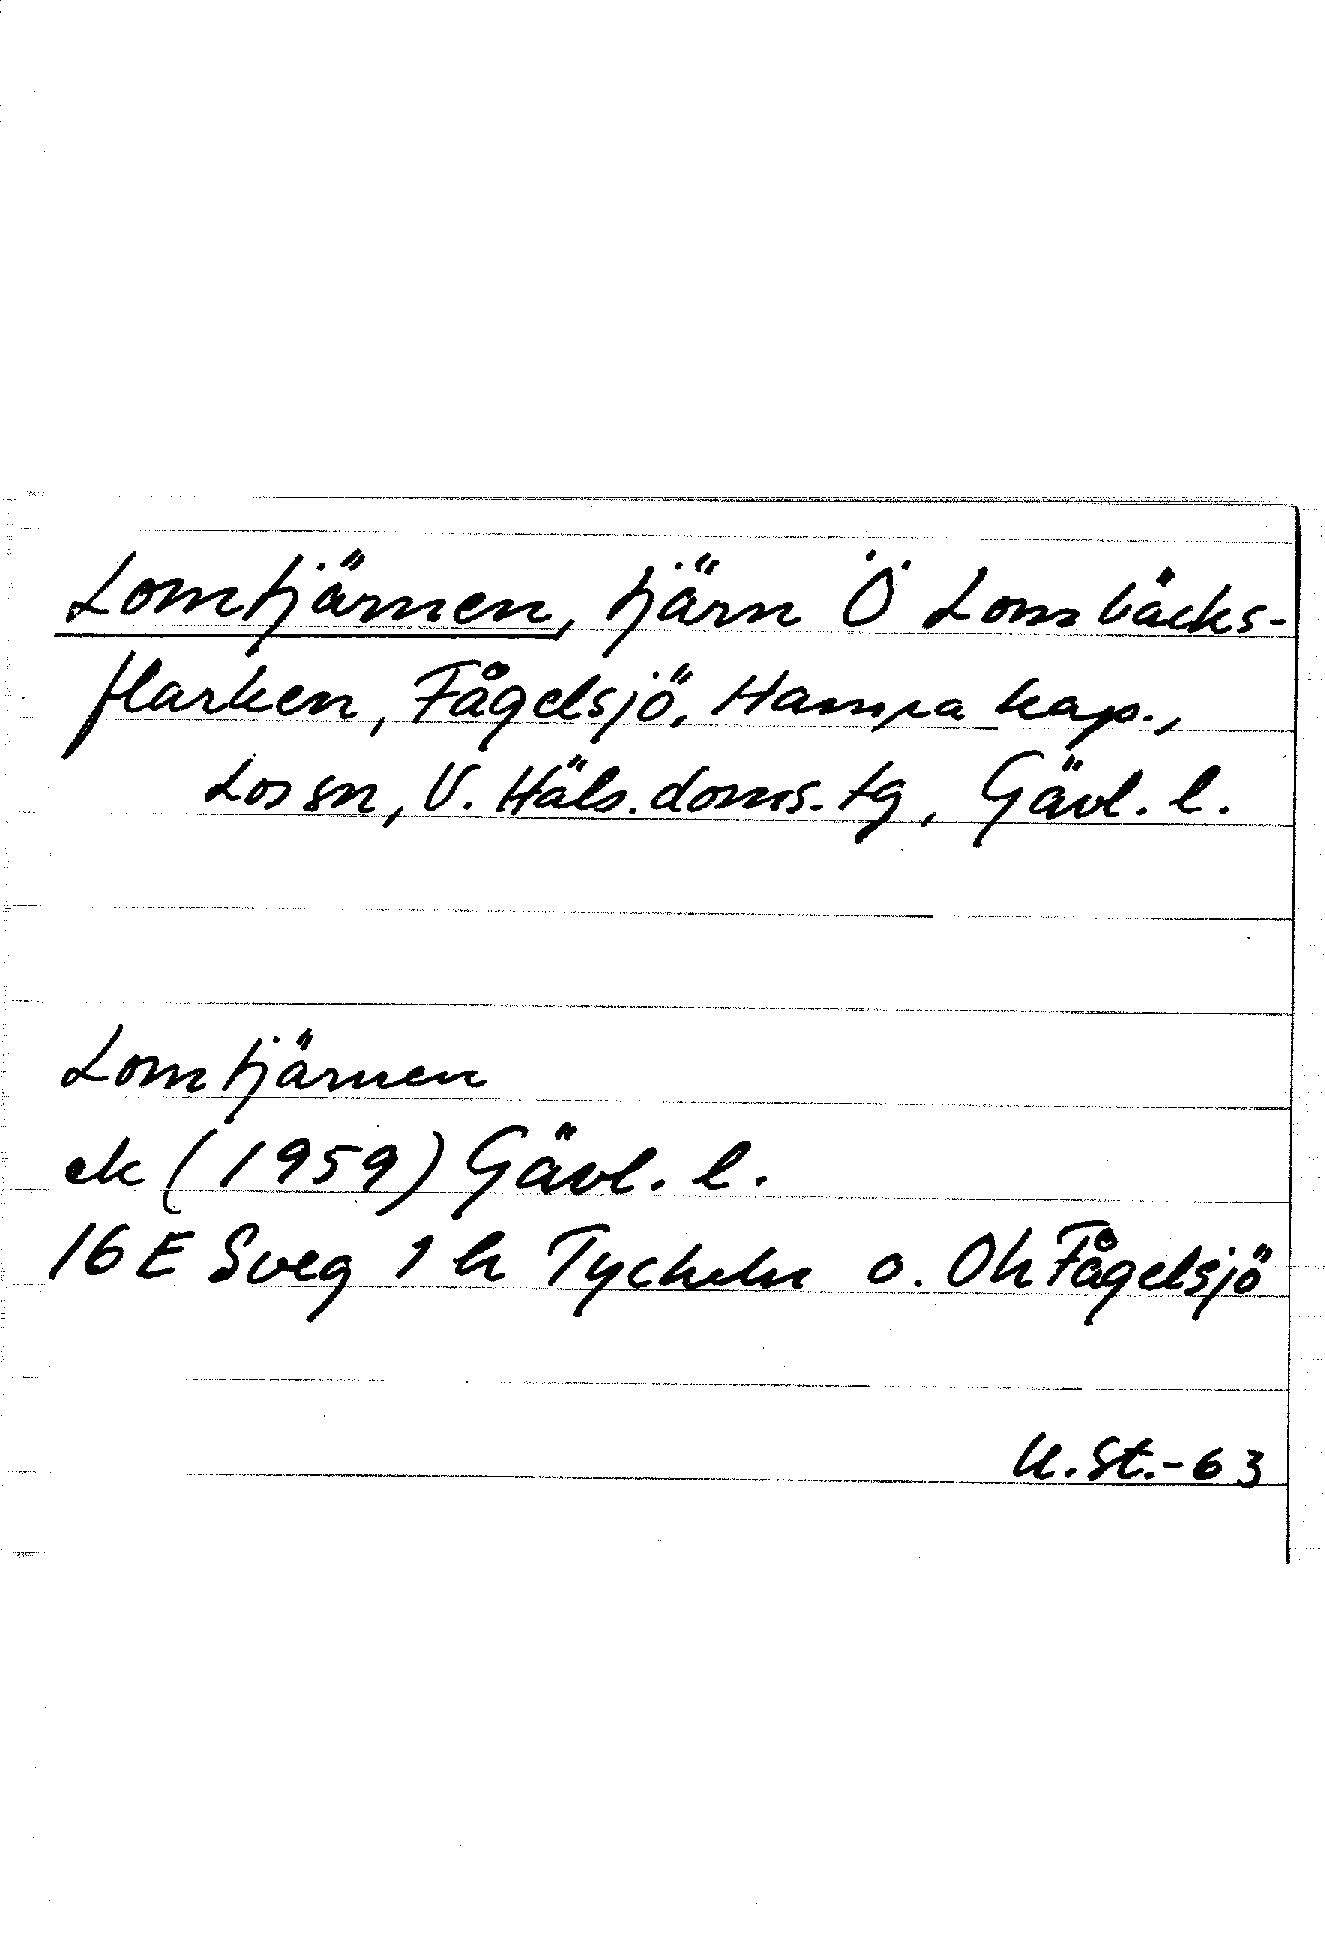 Lomtjärnen, tjärn Ö Lombäcks-
flarken, Fågelsjö, Hamra kap.,
Los sn, V. Häls. doms. tg, Gävl. l.
Lomtjärnen
ek (1959) Gävl. l.
16 E Sveg 1 h Tyckeln o. Oh Fågelsjö
U. St.-63